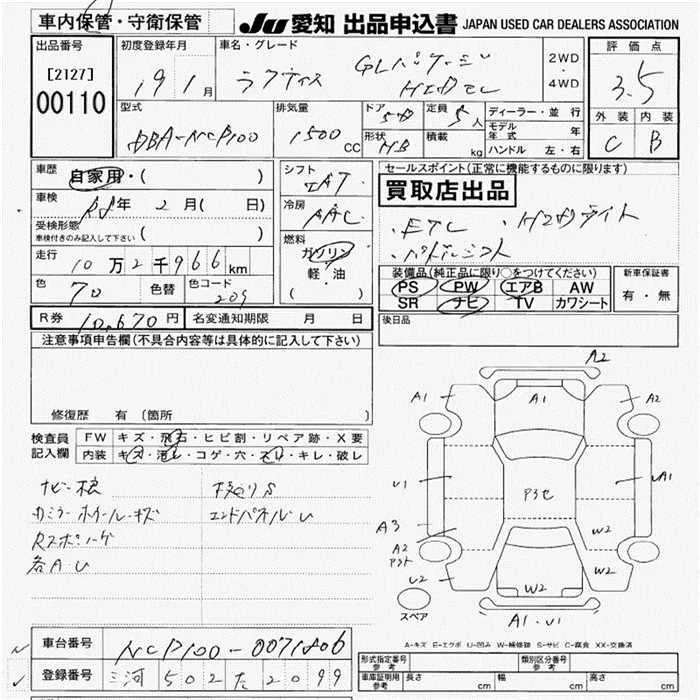 車内保管・守衛保管
JU 愛知 出品申込書 JAPAN USED CAR DEALERS ASSOCIATION
出品番号
[2127]
00110
初度登録年月
19 1月
車名・グレード
ラクティス GLパッケージ
HID
2WD・4WD
評価点
3.5
外装 内装
C B
型式
DBA-NCP100
排気量
1500 CC
ドア 5D
形状 HB
定員 5人
積載 kg
ディーラー・並行
モデル年式 年
ハンドル 左・右
車歴
自家用・( )
車検
年 2月( 日)
受検形態
車検付きのみ記入して下さい ( )
走行
10万2千966km
色
70
色替
色コード
209
シフト
IAT
冷房
AAC
燃料
ガソリン
軽・油
( )
セールスポイント(正常に機能するものに限ります)
買取店出品
・ETC ・HIDライト
・パドルシフト
装備品(純正品に限り○をつけてください)
PS PW エアB AW
SR ナビ TV カワシート
新車保証書
有・無
R券 10,670円
名変通知期限 月 日
後日品
注意事項申告欄(不具合内容等は具体的に記入して下さい)
修復歴 有(箇所 )
検査員記入欄
FW キズ・飛石・ヒビ割・リペア跡・X要
内装 キズ・汚レ・コゲ・穴・スレ・キレ・破レ
エンドパネルU
各AU
A2
A1
A1
A2
U1
A1
A3
A2
W2
U2
W2
W2
A1・U1
スペア
A-キズ E-エクボ U-凹み W-補修跡 S-サビ C-腐食 XX-交換済
車台番号
NCP100-0071806
登録番号
三河 502 た 2099
形式指定番号 参考
類別区分番号 参考
車庫証明用 参考
長さ cm
幅 cm
高さ cm